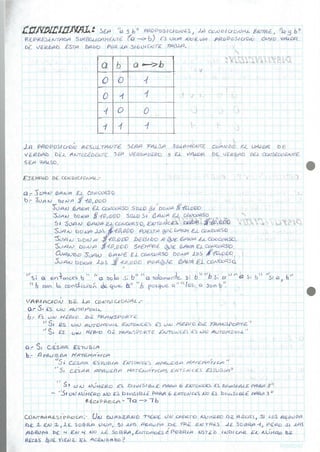 CONDICIONAL: SEA "a y b" PROPOSICIONES, LA CONDICIONAL ENTRE, "a y b"
REPRESENTADA SIMBOLICAMENTE (a → b) ES UNA NUEVA PROPOSICION CUYO VALOR
DE VERDAD ESTA DADO POR LA SIGUIENTE TABLA.
a b a → b
0 0 1
0 1 1
1 0 0
1 1 1
LA PROPOSICIÓN RESULTANTE SERA FALSA SOLAMENTE CUANDO EL VALOR DE
VERDAD DEL ANTECEDENTE SEA VERDADERO Y EL VALOR DE VERDAD DEL CONSECUENTE
SEA FALSO.
EJEMPLO DE CONDICIONAL:
a.- JUAN GANA EL CONCURSO
b.- JUAN DONA $ 10,000
JUAN GANA EL CONCURSO SOLO SI DONA $ 10,000
JUAN DONA $ 10,000 SOLO SI GANA EL CONCURSO
SI JUAN GANA EL CONCURSO, ENTONCES DONA $ 10,000
JUAN DONA LOS $ 10,000 PUESTO QUE GANA EL CONCURSO
JUAN DONA $ 10,000 DEBIDO A QUE GANA EL CONCURSO
JUAN DONA $ 10,000 SIEMPRE QUE GANA EL CONCURSO
CUANDO JUAN GANE EL CONCURSO DONA LOS $ 10,000
JUAN DONA LOS $ 10,000 PORQUE GANA EL CONCURSO
"Si a entonces b" "a solo si b" "a solamente si b" "b si a" "a si b" "Si a, b"
"b con la condición de que a" "b porque a"
VARIACIÓN DE LA CONDICIONAL:
a.- ES UN AUTOMOVIL
b.- ES UN MEDIO DE TRANSPORTE
"SI ES UN AUTOMOVIL ENTONCES ES UN MEDIO DE TRANSPORTE"
"SI ES UN MEDIO DE TRANSPORTE ENTONCES ES UN AUTOMOVIL"
a.- SI CESAR ESTUDIA
b.- APRUEBA MATEMATICA
"SI CESAR ESTUDIA ENTONCES APRUEBA MATEMATICA"
"SI CESAR APRUEBA MATEMATICAS ENTONCES ESTUDIA"
"SI UN NÚMERO ES DIVISIBLE PARA 6 ENTONCES ES DIVISIBLE PARA 3"
- "SI UN NÚMERO NO ES DIVISIBLE PARA 6 ENTONCES NO ES DIVISIBLE PARA 3"
RECIPROCA: ¬a → ¬b
CONTRARRECIPROCA: UN CUADERNO TIENE UN CIERTO NUMERO DE HOJAS, SI LAS AGRUPA
DE 2 EN 2, LE SOBRA UNA, SI LAS AGRUPA DE TRE EN TRES LE SOBRA 1, PERO SI LAS
AGRUPA DE 4 EN 4 NO LE SOBRA, ENTONCES EL NÚMERO DE
HOJAS QUE TIENE EL CUADERNO?